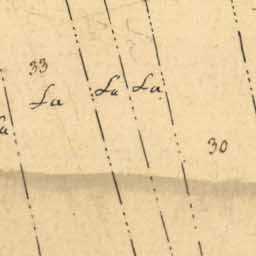 33
La La La
La
30